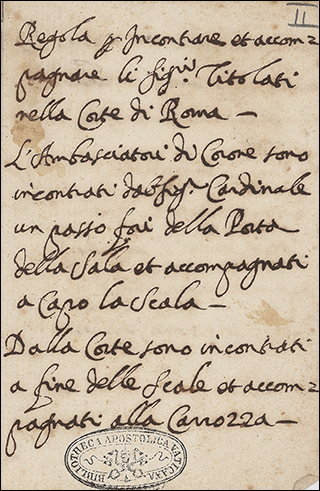 II
Regola p Incontrare et accom=
pagnare li sigri Titolati
nella Corte di Roma —
L'Ambasciatori di Corone sono
incontrati dal sigr Cardinale
un passo fori della Porta
della Sala et accompagnati
a Capo la Scala —
Dalla Corte sono incontrati
a fine delle Scale et accom=
pagnati alla Carrozza —
BIBLIOTHECA APOSTOLICA VATICANA